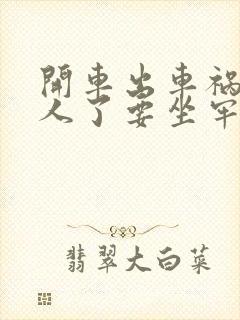 開車出車禍
人了要坐牢
翡翠大白菜